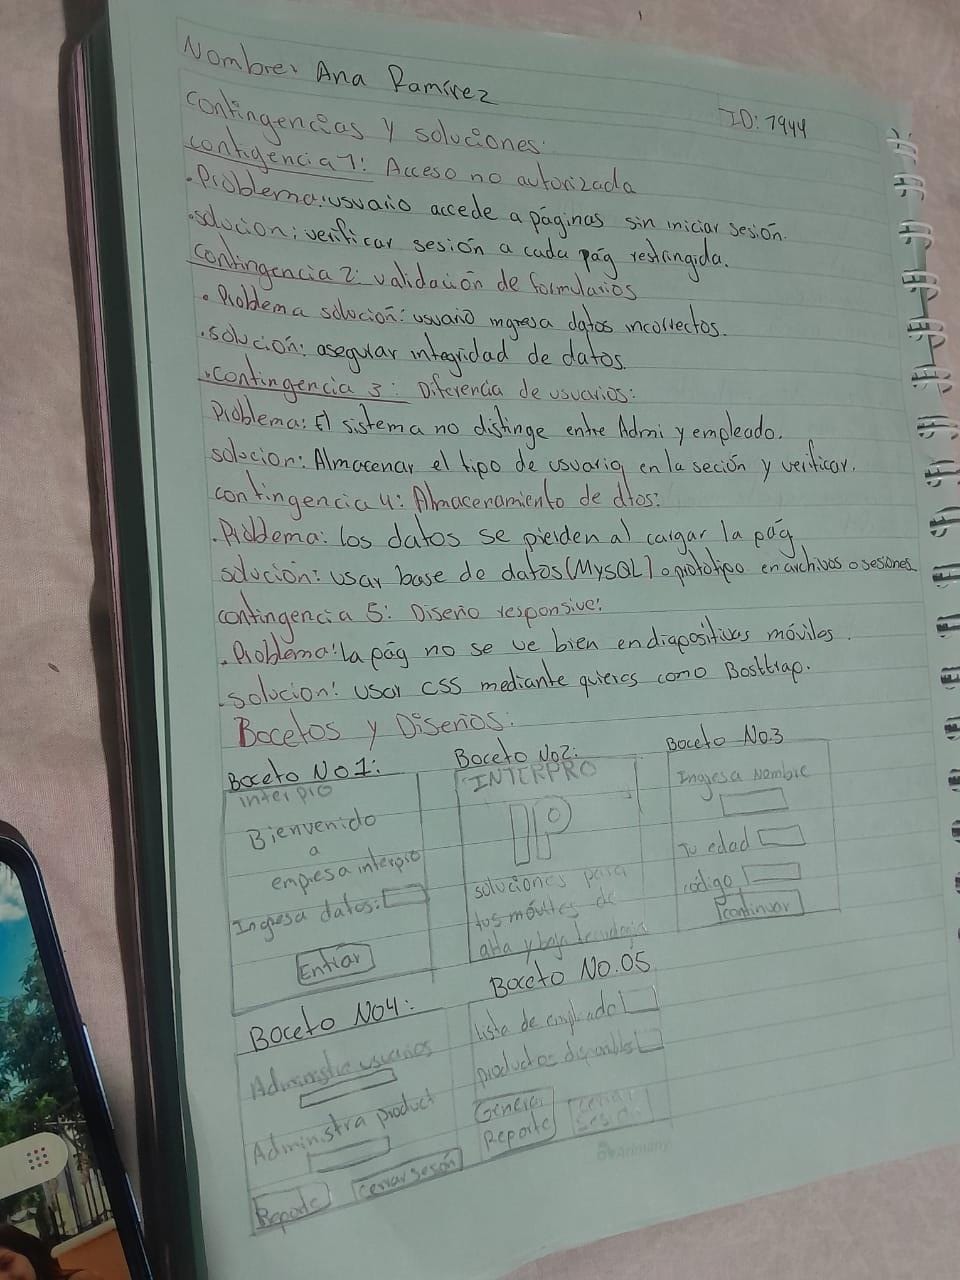 Nombre: Ana Ramírez
ID: 7944
Contingencias y soluciones:
contigencia 1: Acceso no autorizada
.Problema: usuario accede a páginas sin iniciar sesión.
.solucion: verificar sesión a cada pág restringida.
Contingencia 2: validación de formularios
. Problema solución: usuario ingresa datos incorrectos.
.solución: asegurar integridad de datos.
.contingencia 3: Diferencia de usuarios:
Problema: El sistema no distinge entre Admi y empleado.
solocion: Almacenar el tipo de usuario en la seción y verificar.
contingencia 4: Almacenamiento de dtos:
.Problema: los datos se pierden al cargar la pág
solución: usar base de datos (MySQL) o prototipo en archivos o sesiones
contingencia 5: Diseño responsive:
.Problema: la pág no se ve bien en diapositivas móviles.
.solucion: usar css mediante quieres como Bosttrap.
Bocetos y Diseños:
Boceto No 1:
interpro
Bienvenido
a
empresa interpro
Ingresa datos:
Entrar
Boceto No2:
INTERPRO
IP
soluciones para
tus móviles de
alta y baja tecnologia
Boceto No.3
Ingresa Nombre
Tu edad
código
continuar
Boceto No4:
Administra usuarios
Administra product
Reporte
cerrar sesón
Boceto No.05
lista de empleado
productos disponibles
Generar
Reporte
cerrar
sesión